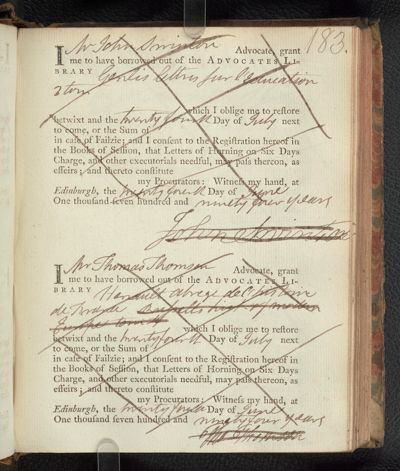 183.
I Mr John Swinton Advocate, grant
me to have borrowed out of the ADVOCATES LI-
BRARY Genlis lettres sur l'education
2 tom
which I oblige me to restore
betwixt and the twenty fourth Day of July next
to come, or the Sum of
in case of Failzie; and I consent to the Registration hereof in
the Books of Session, that Letters of Horning on Six Days
Charge, and other executorials needful, may pass thereon, as
effeirs; and thereto constitute
my Procurators: Witness my hand, at
Edinburgh, the twenty fourth Day of June
One thousand seven hundred and ninety four years
John Swinton
I Mr Thomas Thomson Advocate, grant
me to have borrowed out of the ADVOCATES LI-
BRARY Henault abrege de l'histoire
de France of modern
Europe
which I oblige me to restore
betwixt and the twenty fourth Day of July next
to come, or the Sum of
in case of Failzie; and I consent to the Registration hereof in
the Books of Session, that Letters of Horning on Six Days
Charge, and other executorials needful, may pass thereon, as
effeirs; and thereto constitute
my Procurators: Witness my hand, at
Edinburgh, the twenty fourth Day of June
One thousand seven hundred and ninety four years
Tho Thomson